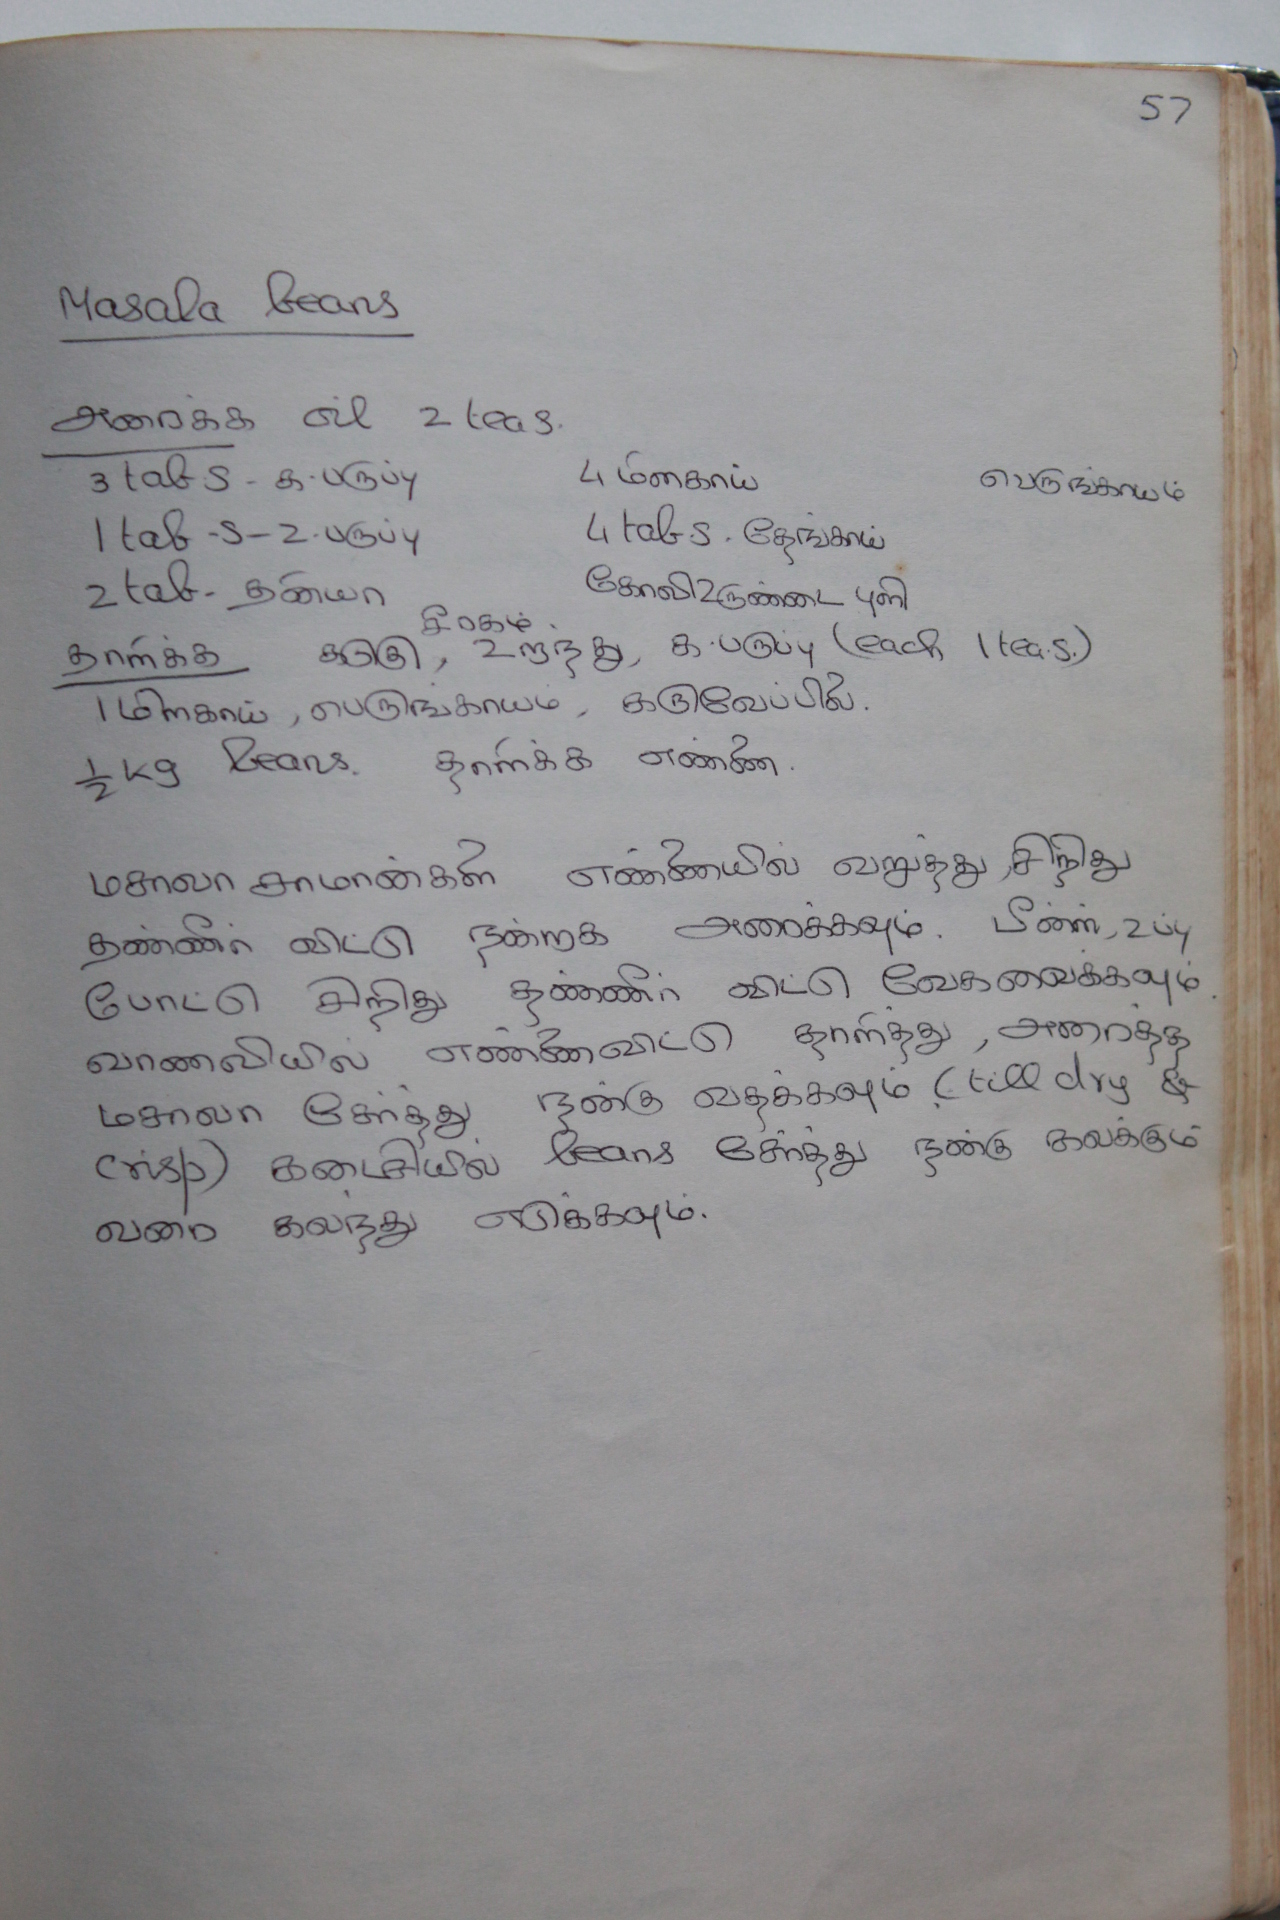 57
Masala beans
அரைக்க எய் 2 teas.
3 tab.s - க.பருப்பு 4 மிளகாய் பெருங்காயம்
1 tab-s-உ.பருப்பு 4 tab.s. தேங்காய்
2 tab- தனியா கோலிஉருண்டை புளி
சீரகம்.
தாளிக்க கடுகு, உளுந்து, க.பருப்பு (each 1 tea.s.)
1 மிளகாய், பெருங்காயம், கருவேப்பிலை.
½ kg beans. தாளிக்க எண்ணை.
மசாலா சாமான்களை எண்ணையில் வறுத்து, சிறிது
தண்ணீர் விட்டு நன்றாக அரைக்கவும். பீன்ஸ், உப்பு
போட்டு சிறிது தண்ணீர் விட்டு வேகவைக்கவும்.
வாணலியில் எண்ணைவிட்டு தாளித்து, அரைத்த
மசாலா சேர்த்து நன்கு வதக்கவும் (till dry &
crisp) கடைசியில் beans சேர்த்து நன்கு கலக்கும்
வரை கலந்து எடுக்கவும்.